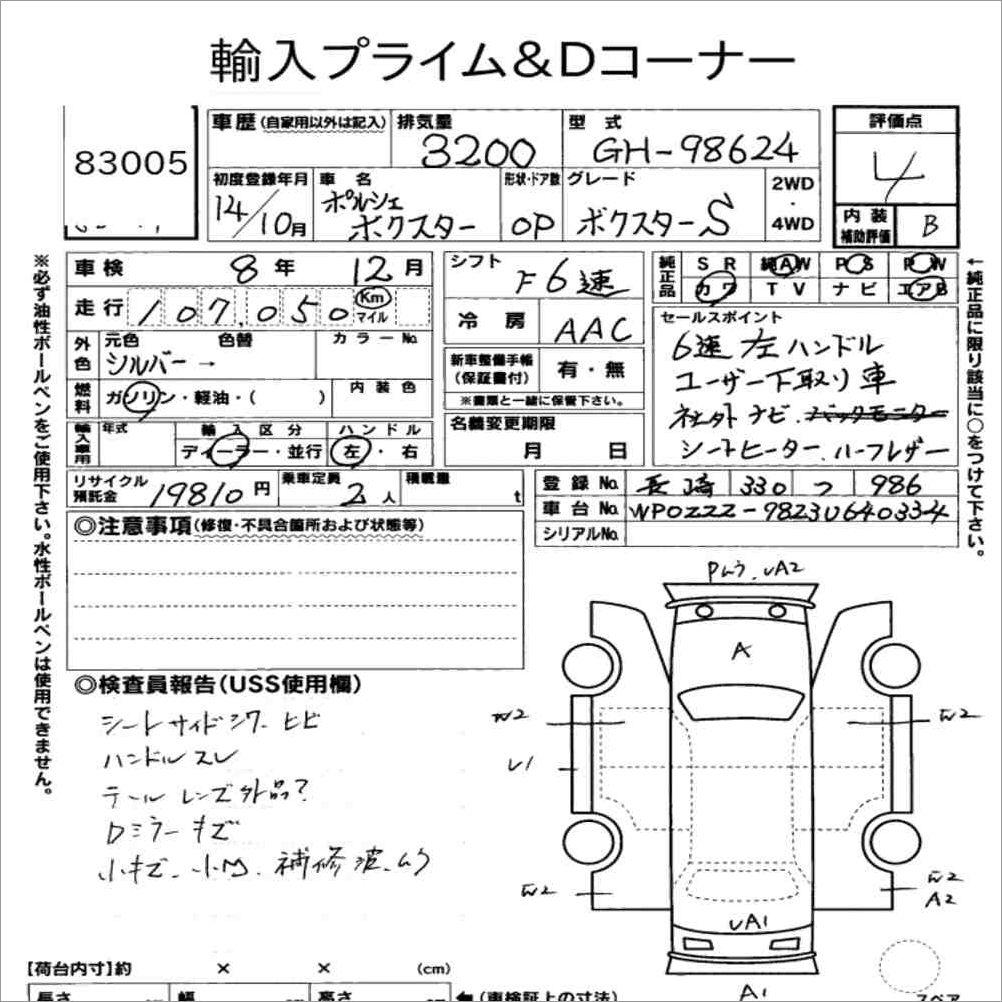 輸入プライム&Dコーナー
83005
車歴(自家用以外は記入) 排気量 3200 型式 GH-98624
評価点 4
初度登録年月 14/10月 車名 ポルシェ ボクスター 形状・ドア数 OP グレード ボクスターS 2WD・4WD
内装補助評価 B
車検 8年 12月 シフト F6速
純正品 SR 純AW PS PW カワ TV ナビ エアB
走行 107,050 Km マイル
冷房 AAC
セールスポイント
6速 左ハンドル
ユーザー下取り車
社外ナビ. バックモニター
シートヒーター. ハーフレザー
外色 元色 シルバー→ 色替 カラーNo.
燃料 ガソリン・軽油・( ) 内装色
新車整備手帳(保証書付) 有・無
※書類と一緒に保管下さい。
輸入車用 年式 輸入区分 ディーラー・並行 ハンドル 左・右
名義変更期限 月 日
リサイクル預託金 19810円 乗車定員 2人 積載量 t
登録No. 長崎 330 つ 986
車台No. WP0ZZZ-98Z3U640334
シリアルNo.
◎注意事項(修復・不具合箇所および状態等)
◎検査員報告(USS使用欄)
シートサイドシワ ヒビ
ハンドルスレ
テールレンズ外品?
Dミラーキズ
小キズ、小凹、補修波、ムラ
Pムラ、UA2
A
W2
W2
U1
W2
W2
A2
UA1
A1
スペア
【荷台内寸】約 × × (cm)
長さ 幅 高さ ←(車検証上の寸法)
※必ず油性ボールペンをご使用下さい。水性ボールペンは使用できません。
←純正品に限り該当に○をつけて下さい。